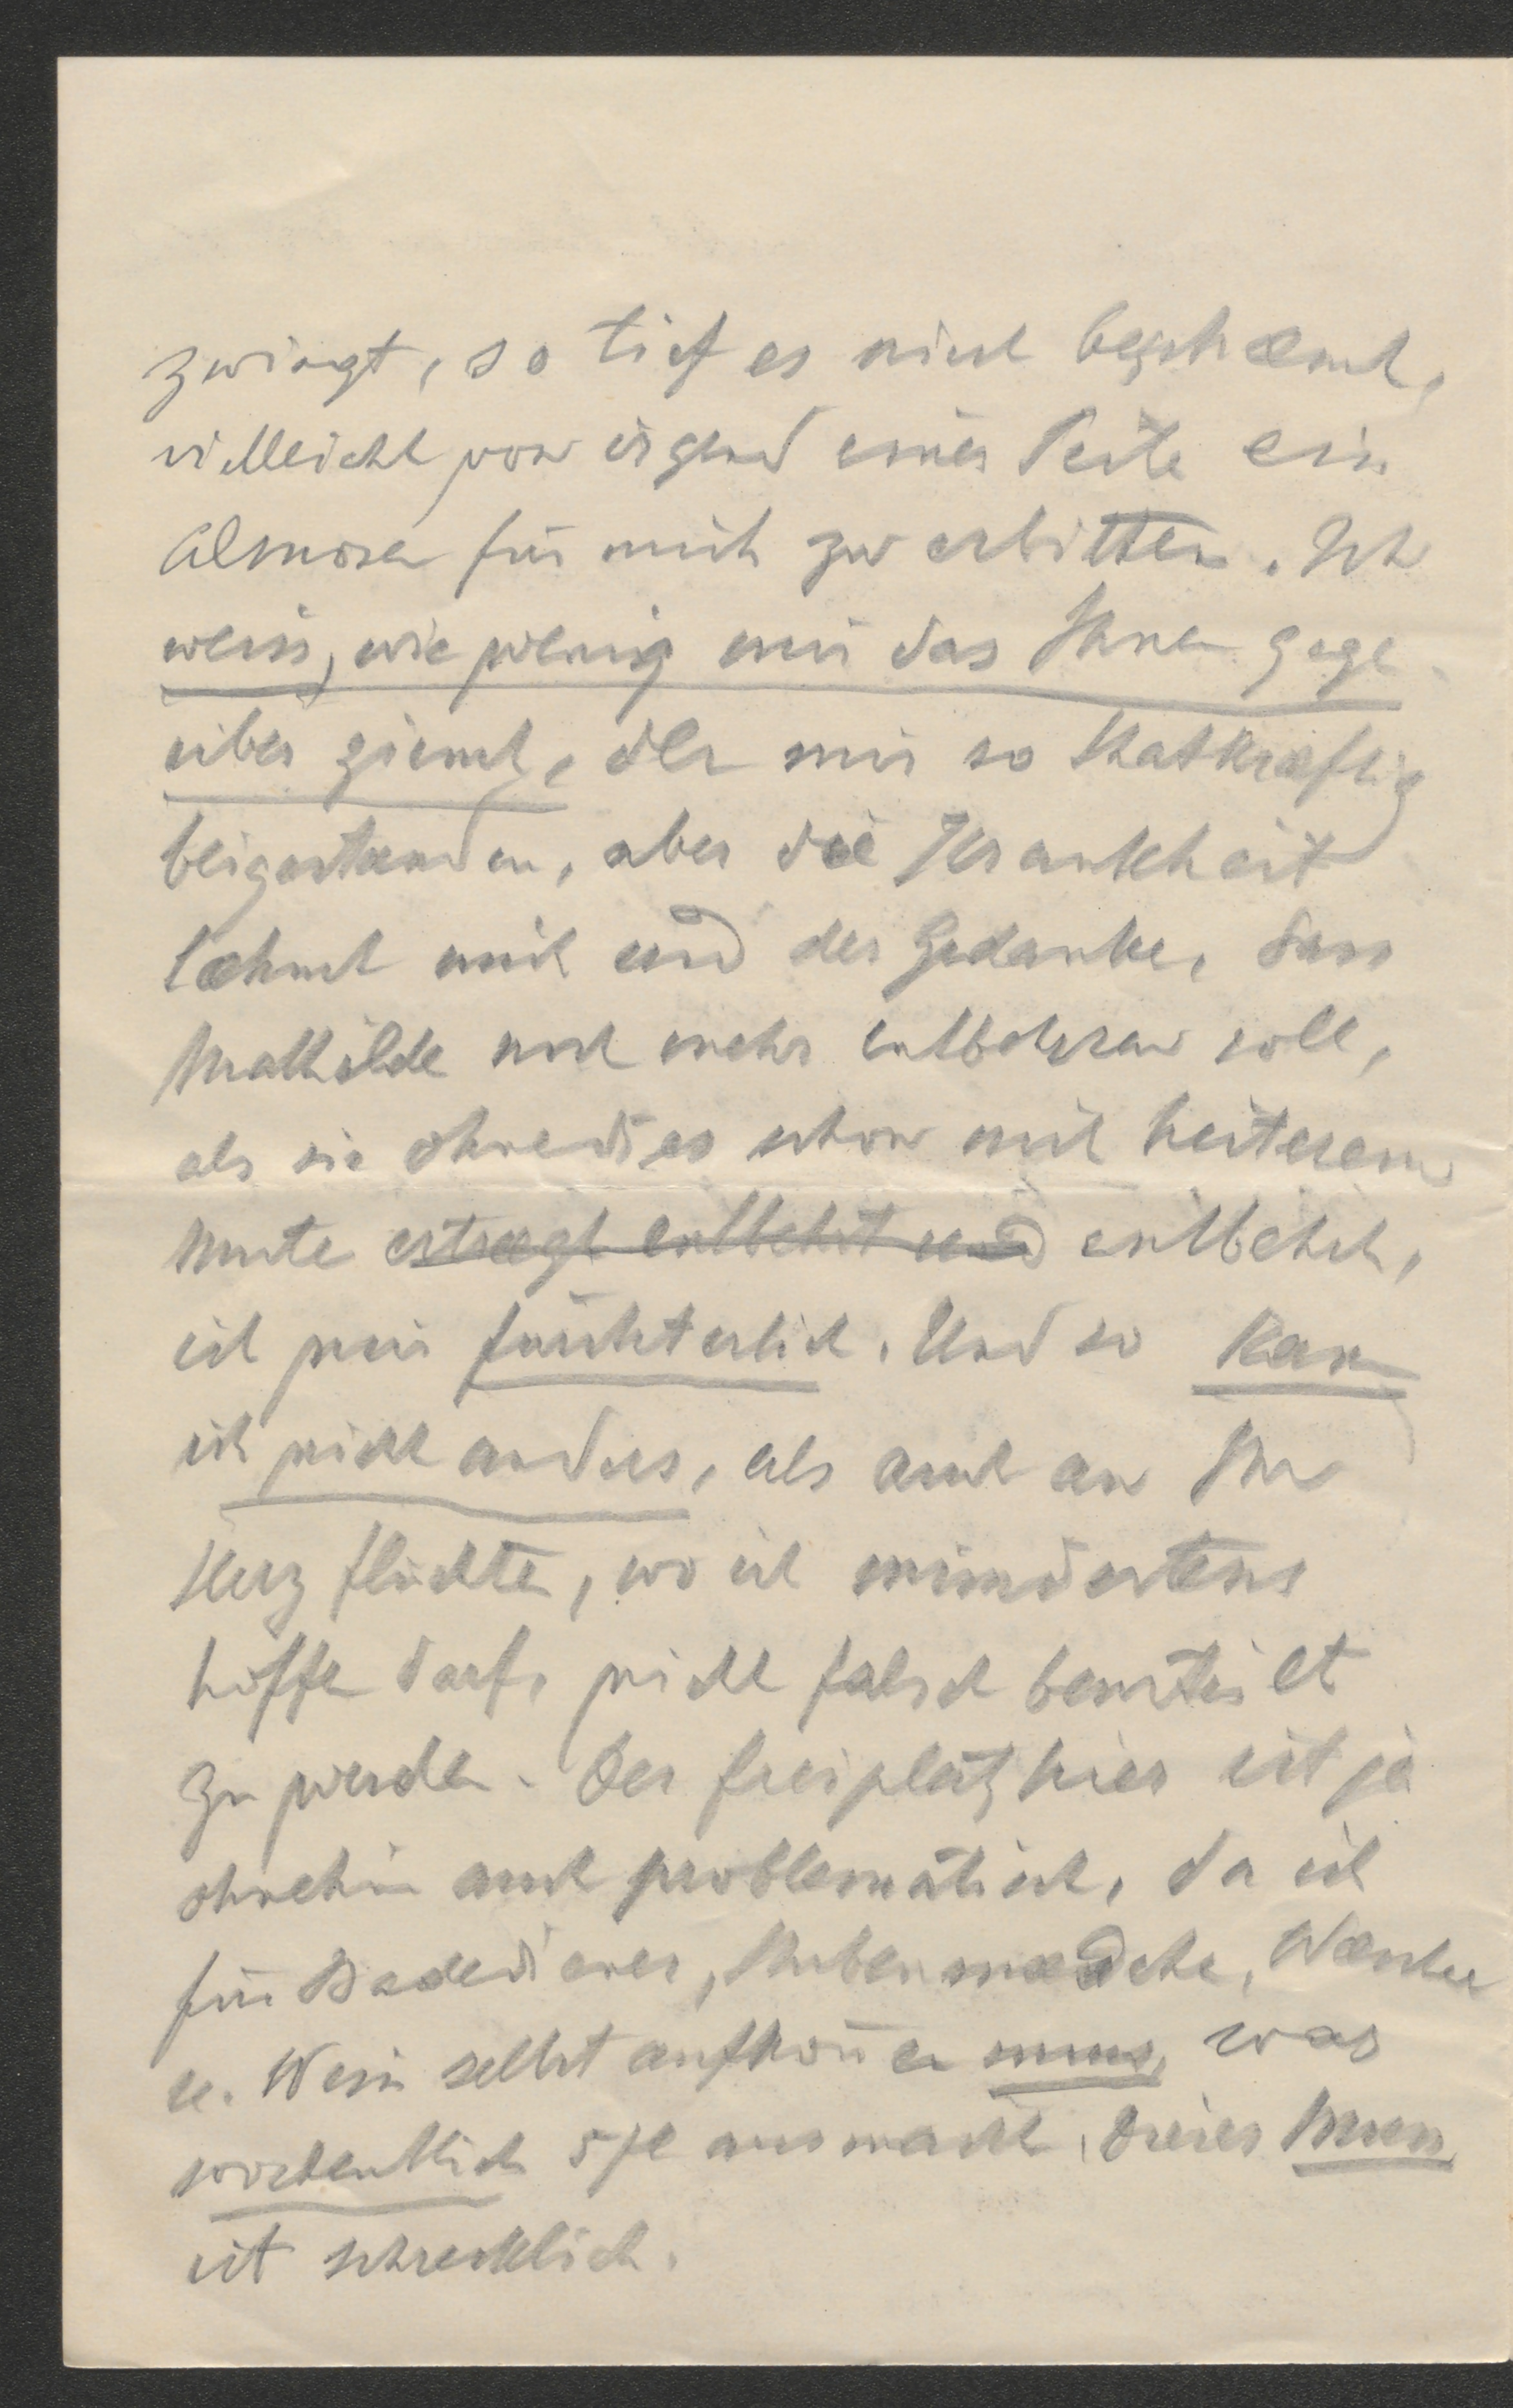 zwingt, so tief es mich beschaemt,
vielleicht von irgend einer Seite ein
Almosen für mich zu erbitten. Ich
weiss, wie wenig mir das Ihnen gege-
über ziemt, der mir so thatkraeftig
beigestanden, aber die Krankheit
laehmt mich und der Gedanke, dass
Mathilde noch mehr entbehren soll,
als sie ohnedies schon mit heiterem
Mute ertraegt entbehrt und entbehrt,
ist mir fürchterlich. Und so kann
ich nicht anders, als auch an Ihr
Herz flüchten, wo ich mindestens
hoffen darf, nicht falsch beurteilt
zu werden. Der Freiplatz hier ist ja
ohnehin auch problematisch, da ich
für Badediener, Stubenmaedchen, Waesche
u. Wein selbst aufkom̄en muss, was
wochentlich 5 fl ausmacht. Dieses Muss
ist schrecklich.